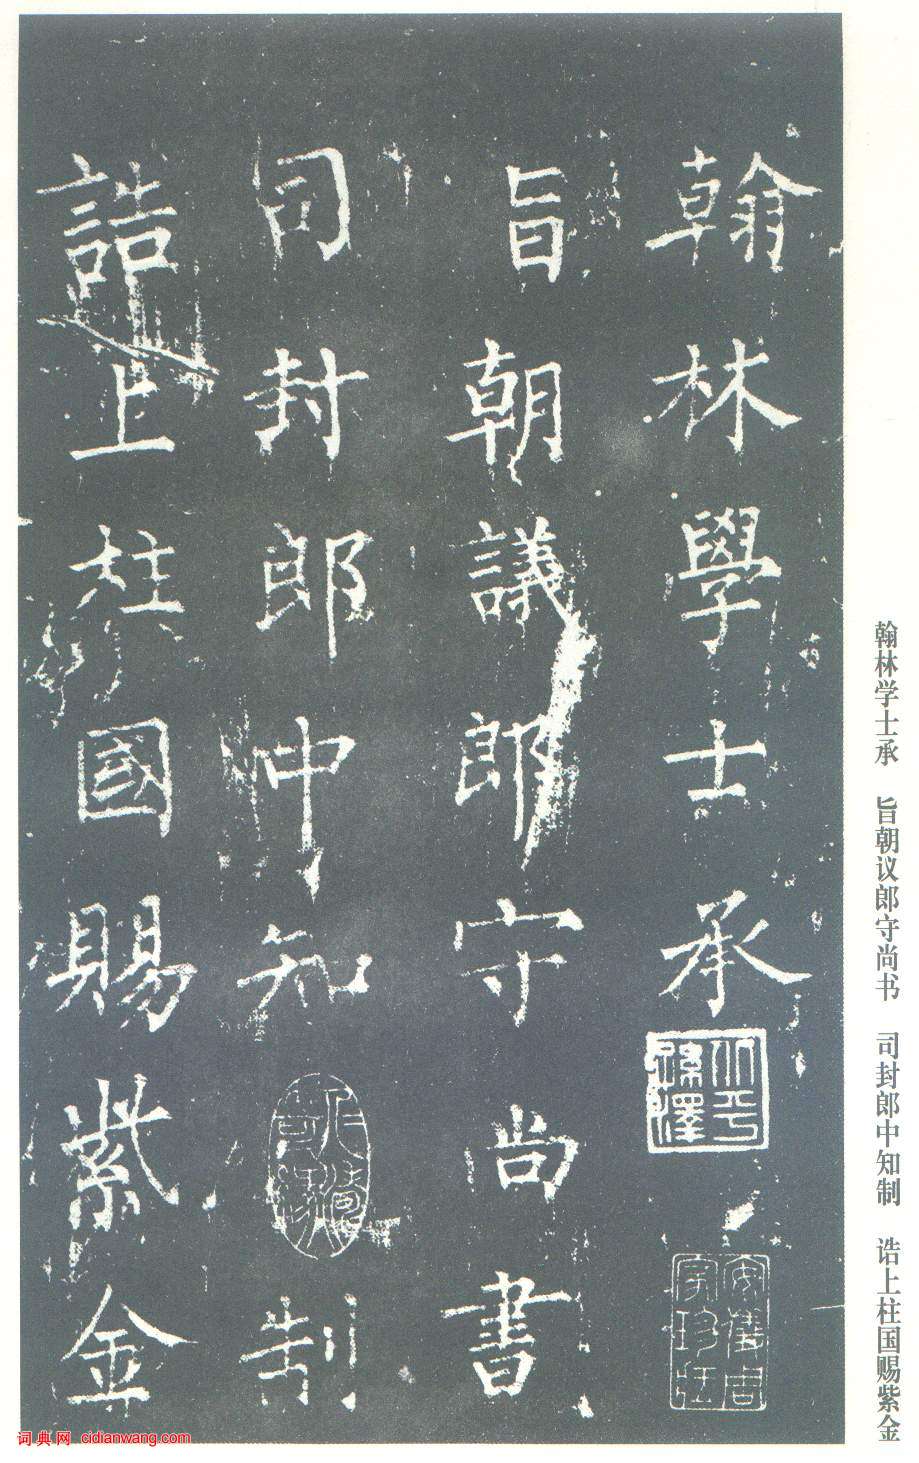 翰林學士承
旨朝議郎守尚書
司封郎中知制
誥上柱國賜紫金
翰林学士承 旨朝议郎守尚书 司封郎中知制 诰上柱国赐紫金
词典网 cidianwang.com